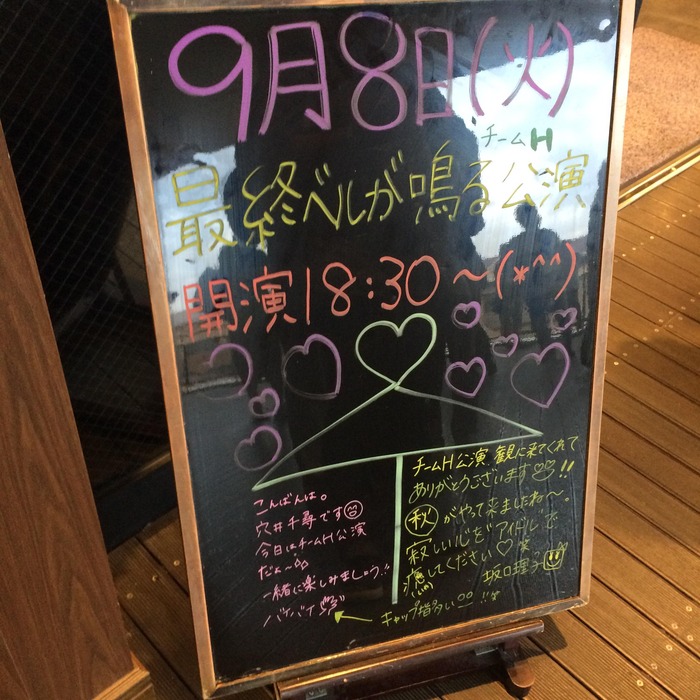 9月8日(火)
チームH
最終ベルが鳴る公演
開演18:30~(*^^)
こんばんは。
穴井千尋です
今日はチームH公演
だよ~
一緒に楽しみましょう!!
バイバイ
チームH公演、観に来てくれて
ありがとうございます♡!!
秋がやって来ましたね~。
寂しい心をアイドルで
癒してください♡
坂口理子
キャップ指多い!!